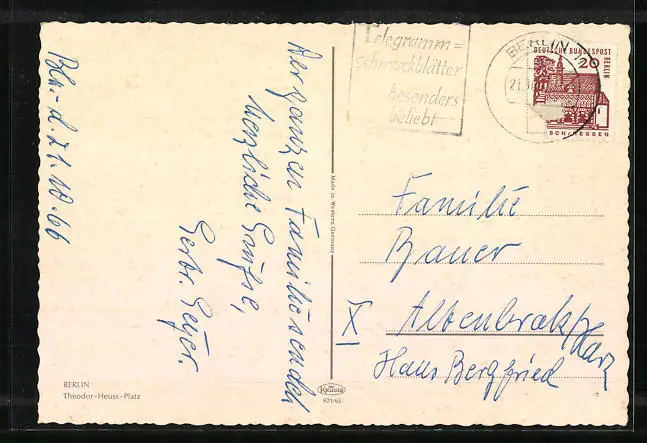 Bln.- d. 21.10.66
Der ganzen Familie sendet
herzliche Grüße,
Gebr. Geyer.
BERLIN
Theodor-Heuss-Platz
Made in Western Germany
921/65
Telegramm=
Schmuckblätter
besonders
beliebt
BERLIN
21.
DEUTSCHE BUNDESPOST BERLIN
20
LORSCH/HESSEN
Familie
Bauer
X Altenbrak/Harz
Haus Bergfried